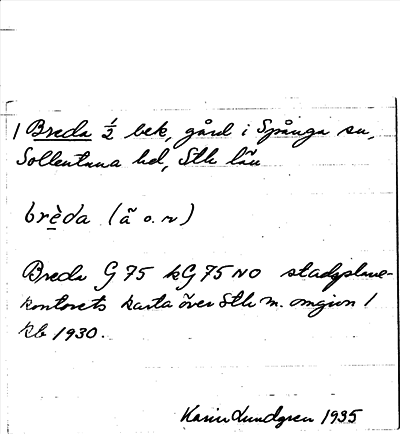 1 Breda ½ bek, gård i Spånga sn,
Sollentuna hd, Sth län
brèda (ã o. ~)
Breda G75 kG75 NO stadsplane-
kontorets karta över Sth m. omgivn 1
Kb 1930.
Karin Lundgren 1935